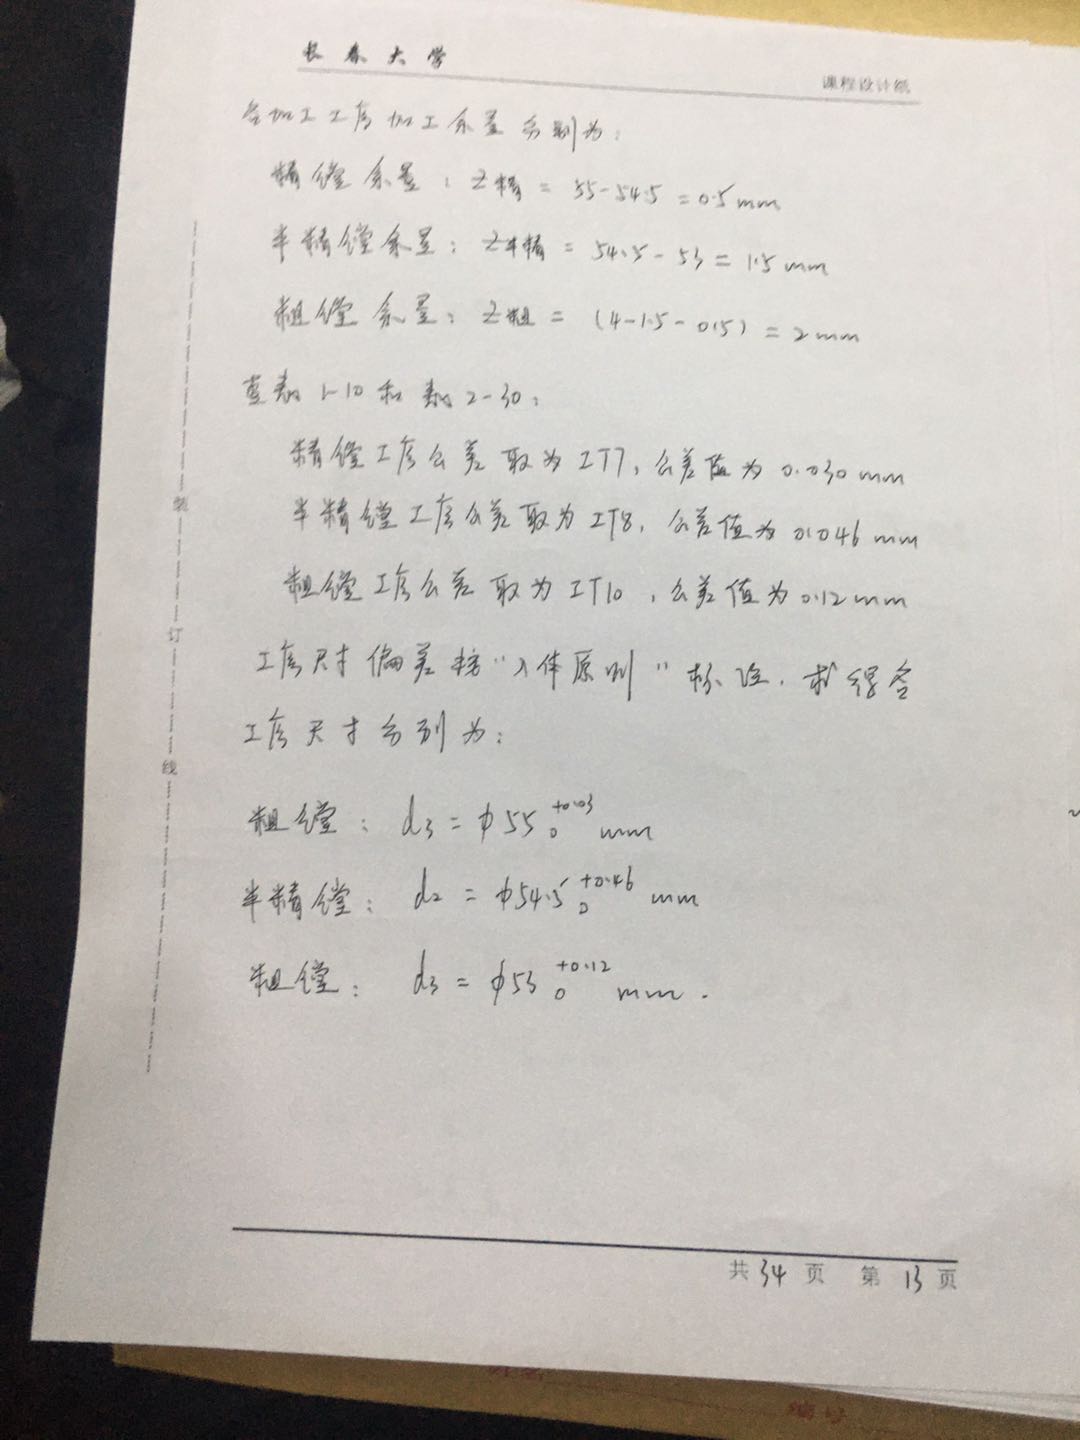 长春大学
课程设计纸
各加工工序加工余量分别为:
精镗余量:Z精 = 55-54.5 = 0.5mm
半精镗余量:Z半精 = 54.5-53 = 1.5mm
粗镗余量:Z粗 = (4-1.5-0.5) = 2mm
查表1-10和表2-30:
精镗工序公差取为IT7,公差值为0.030mm
半精镗工序公差取为IT8,公差值为0.046mm
粗镗工序公差取为IT10,公差值为0.12mm
工序尺寸偏差按"入体原则"标注,求得各
工序尺寸分别为:
粗镗:d3 = φ55 +0.03 0 mm
半精镗:d2 = φ54.5 +0.46 0 mm
粗镗:d3 = φ53 +0.12 0 mm.
装
订
线
共34页 第13页
编号